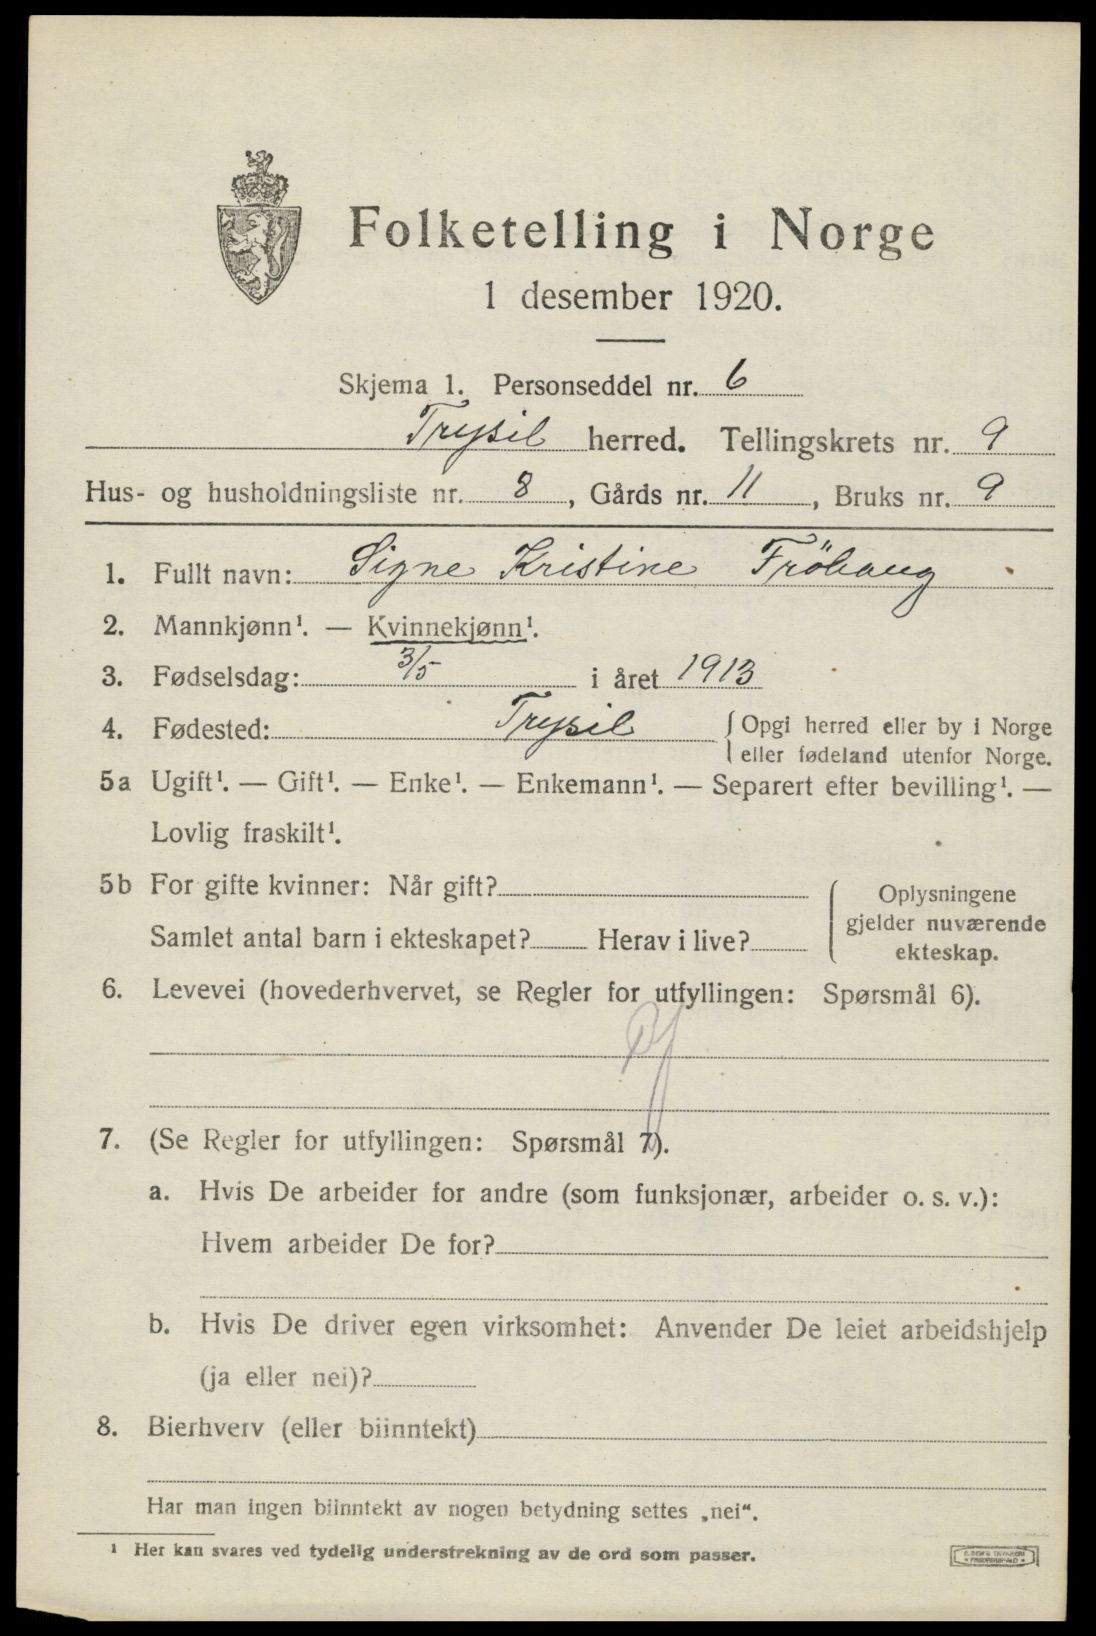 Folketelling i Norge
1 desember 1920.
Skjema 1. Personseddel nr. 6
Trysil herred. Tellingskrets nr. 9
Hus- og husholdningsliste nr. 8, Gårds nr. 11, Bruks nr. 9
1. Fullt navn: Signe Kristine Fröhaug
2. Mannkjønn¹. — Kvinnekjønn¹.
3. Fødselsdag: 3/5 i året 1913
4. Fødested: Trysil { Opgi herred eller by i Norge
eller fødeland utenfor Norge.
5a Ugift¹. — Gift¹. — Enke¹. — Enkemann¹. — Separert efter bevilling¹. —
Lovlig fraskilt¹.
5b For gifte kvinner: Når gift? { Oplysningene
gjelder nuværende
Samlet antal barn i ekteskapet? Herav i live?
ekteskap.
6. Levevei (hovederhvervet, se Regler for utfyllingen: Spørsmål 6).
7. (Se Regler for utfyllingen: Spørsmål 7).
a. Hvis De arbeider for andre (som funksjonær, arbeider o. s. v.):
Hvem arbeider De for?
b. Hvis De driver egen virksomhet: Anvender De leiet arbeidshjelp
(ja eller nei)?
8. Bierhverv (eller biinntekt)
Har man ingen biinntekt av nogen betydning settes „nei“.
¹ Her kan svares ved tydelig understrekning av de ord som passer.